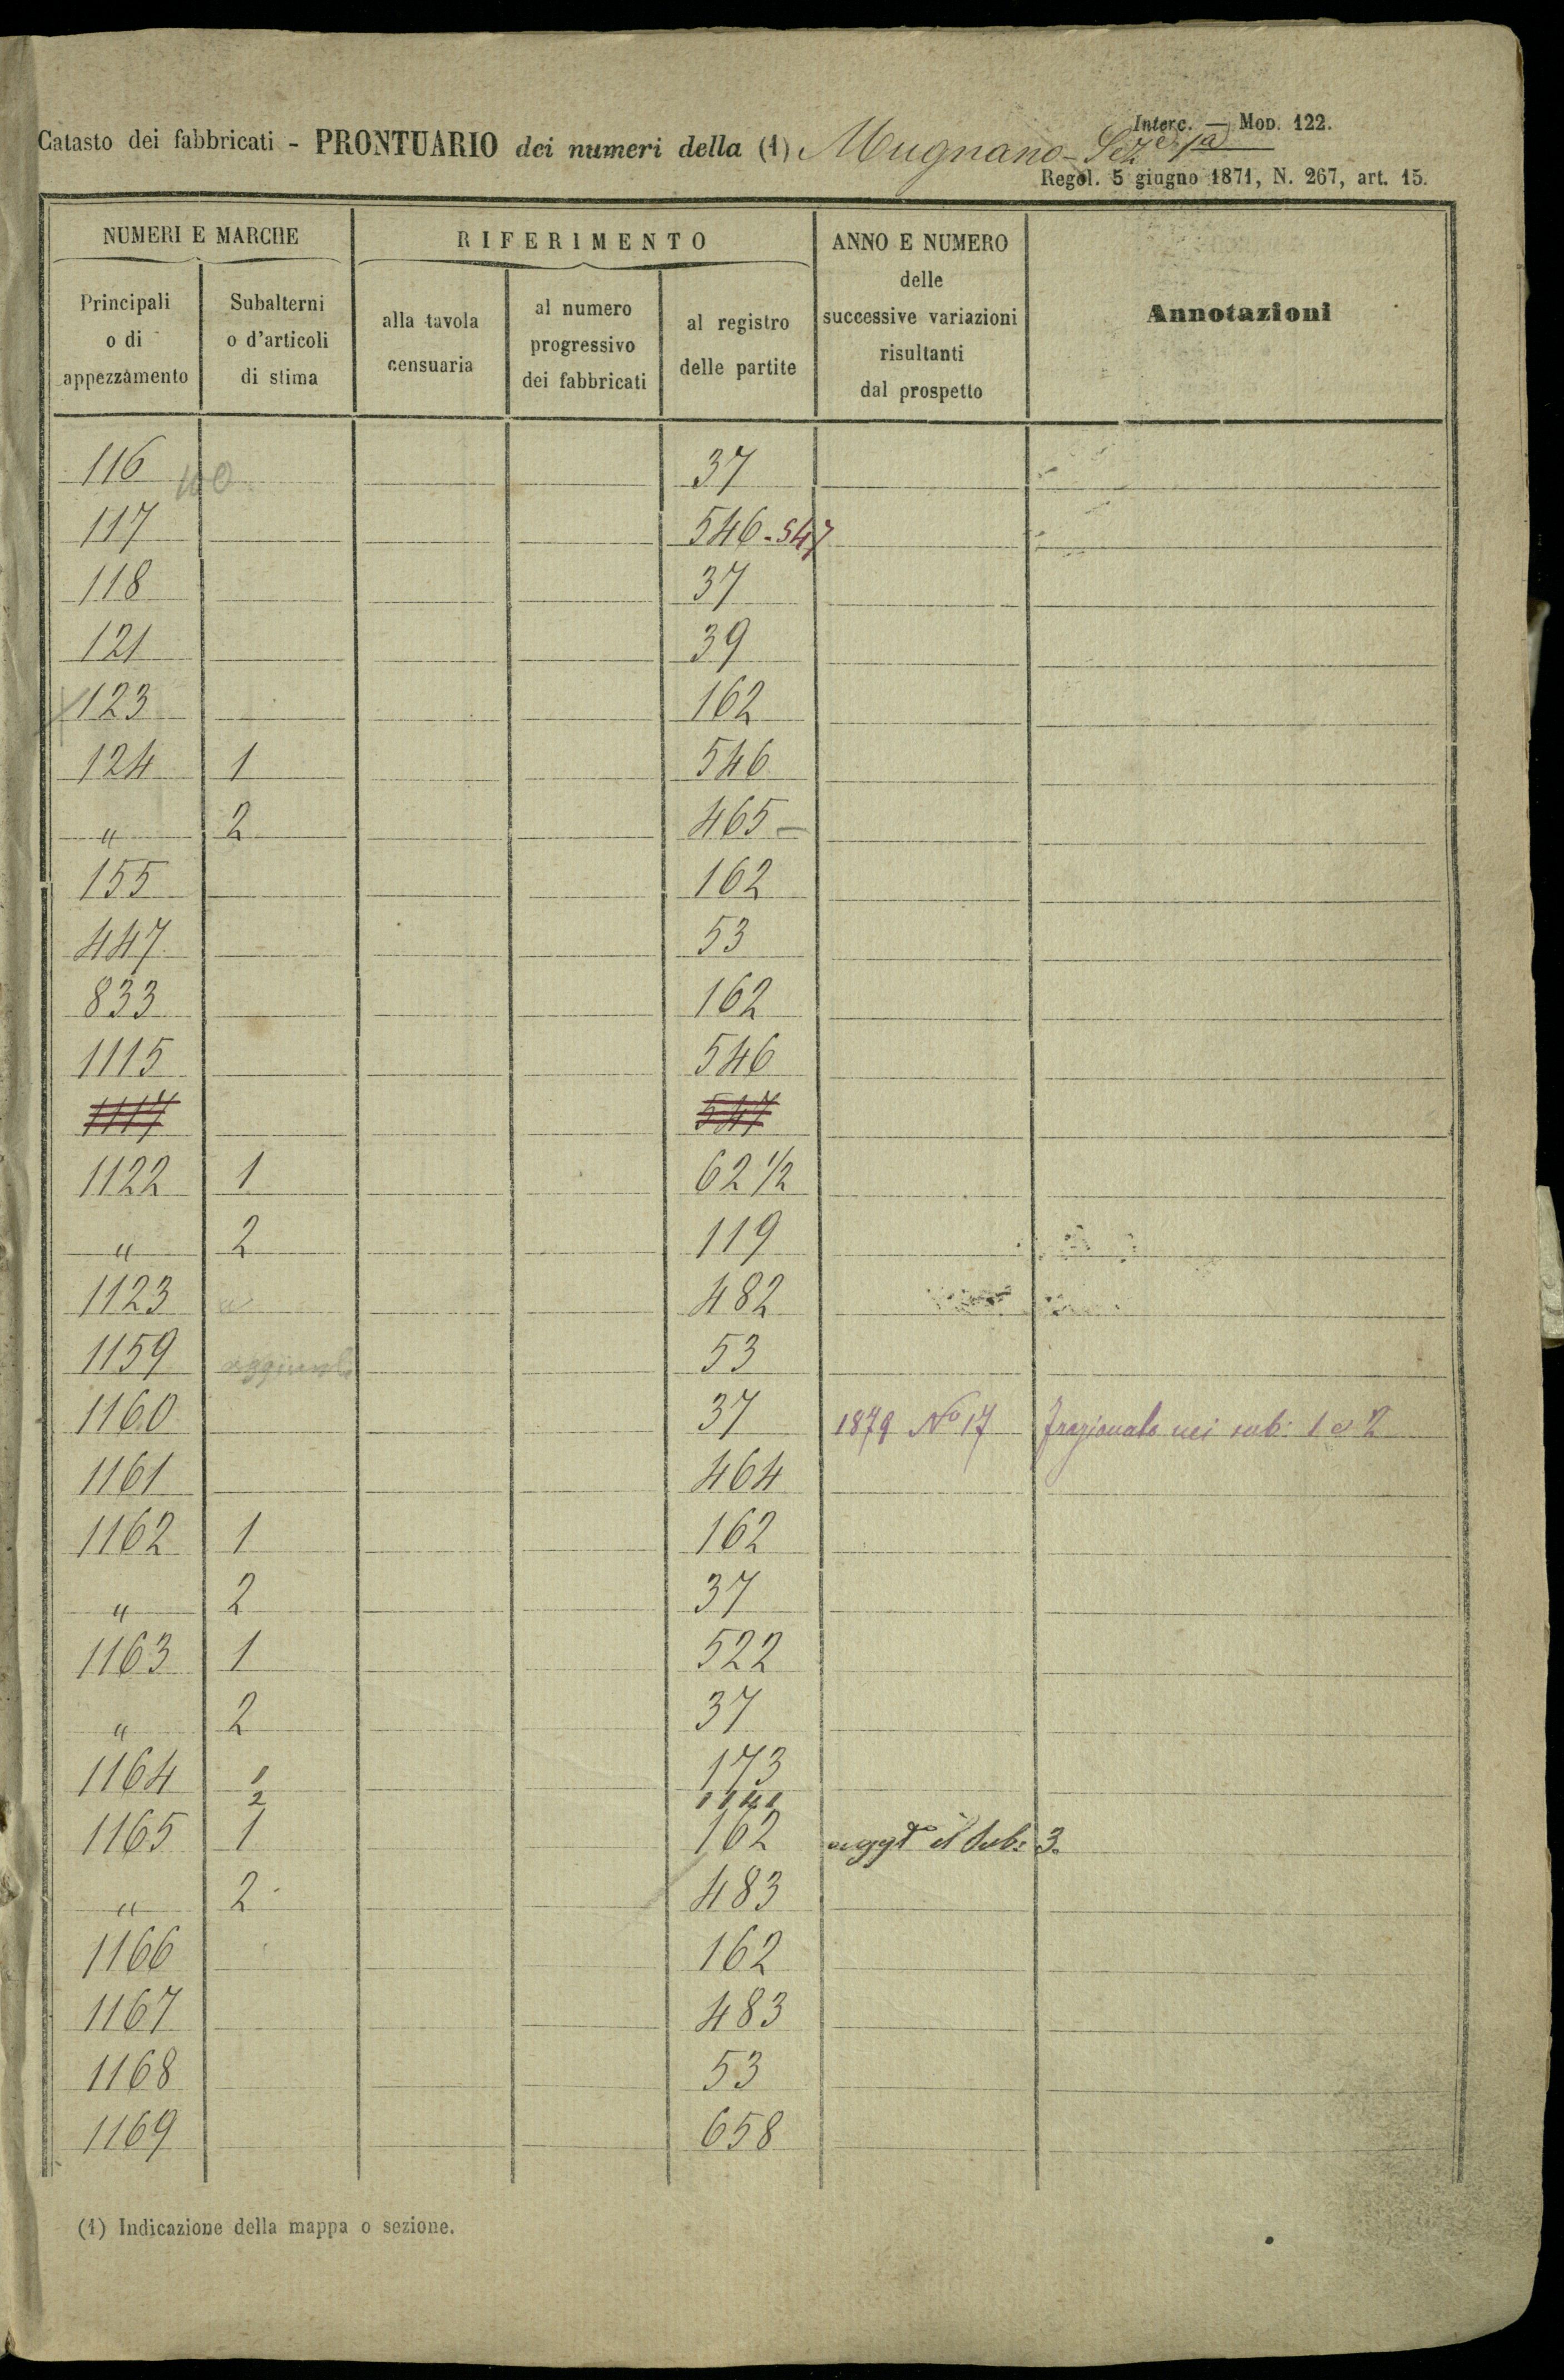 Interc. — Mod. 122.
Catasto dei fabbricati - PRONTUARIO dei numeri della (1) Mugnano - Sez.e 1ª
Regol. 5 giugno 1871, N. 267, art. 15.
NUMERI E MARCHE
Principali
o di
appezzamento
Subalterni
o d'articoli
di stima
RIFERIMENTO
alla tavola
censuaria
al numero
progressivo
dei fabbricati
al registro
delle partite
ANNO E NUMERO
delle
successive variazioni
risultanti
dal prospetto
Annotazioni
116 100 37
117 546 - 547
118 37
121 39
123 162
124 1 546
" 2 465 -
155 162
447 53
833 162
1115 546
1117 547
1122 1 62 1/2
" 2 119
1123 482
1159 53
1160 37 1879 No 17 frazionato nei sub: 1 e 2
1161 464
1162 1 162
" 2 37
1163 1 522
" 2 37
1164 1 173
2 1141
1165 1 162 aggto il sub: 3.
" 2 483
1166 162
1167 483
1168 53
1169 658
(1) Indicazione della mappa o sezione.